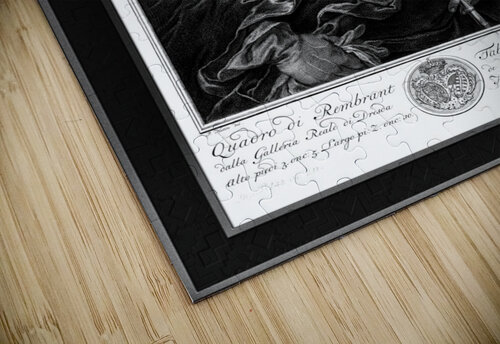 Quadro di Rembrant
dalla Galleria Reale di Dresda
alto piedi 3. onc. 5. Largo pi: 2. onc. 10
Tab
de